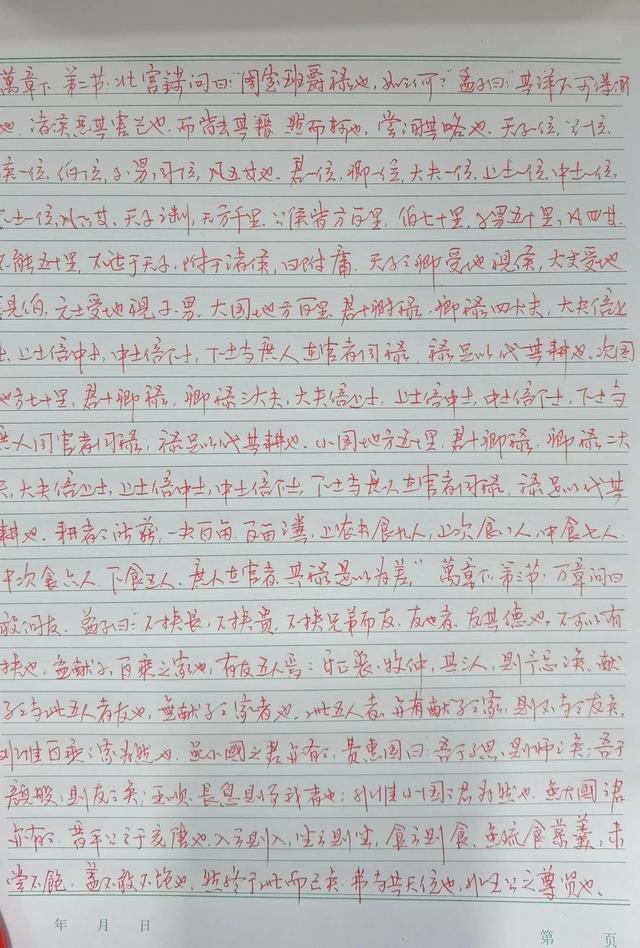 萬章下 第二节：北宫錡问曰：“周室班爵禄也，如之何？”孟子曰：“其详不可得闻
也。诸侯恶其害己也，而皆去其籍。然而轲也，尝闻其略也。天子一位，公一位，
侯一位，伯一位，子、男同位，凡五等也。君一位，卿一位，大夫一位，上士一位，中士一位，
下士一位，凡六等。天子之制，地方千里，公侯皆方百里，伯七十里，子男五十里，凡四等。
不能五十里，不达于天子，附于诸侯，曰附庸。天子之卿受地视侯，大夫受地
视伯，元士受地视子、男。大国地方百里，君十卿禄，卿禄四大夫，大夫倍上
士，上士倍中士，中士倍下士，下士与庶人在官者同禄，禄足以代其耕也。次国
地方七十里，君十卿禄，卿禄三大夫，大夫倍上士，上士倍中士，中士倍下士，下士与
庶人同官者同禄，禄足以代其耕也。小国地方五十里，君十卿禄，卿禄二大
夫，大夫倍上士，上士倍中士，中士倍下士，下士与庶人在官者同禄，禄足以代其
耕也。耕者之所获，一夫百亩。百亩之粪，上农夫食九人，上次食八人，中食七人，
中次食六人，下食五人。庶人在官者，其禄是以为差。” 萬章下 第三节：万章问曰
敢问友。孟子曰：“不挟长，不挟贵，不挟兄弟而友。友也者，友其德也，不可以有
挟也。孟献子，百乘之家也，有友五人焉：乐正裘、牧仲，其三人，则予忘之矣。献
子之与此五人者友也，無献子之家者也。此五人者，亦有献子之家，则不与之友矣。
非惟百乘之家为然也，虽小國之君亦有之。费惠国曰：吾于子思，则师之矣；吾于
颜般，则友之矣；王顺、長息则事我者也；非惟小国之君为然也，虽大國之君
亦有之。晋平公之于亥唐也，入云则入，坐云则坐，食云则食。虽疏食菜羹，未
尝不飽，盖不敢不饱也。然终于此而已矣。弗与共天位也，非王公之尊贤也。
年 月 日
第 页